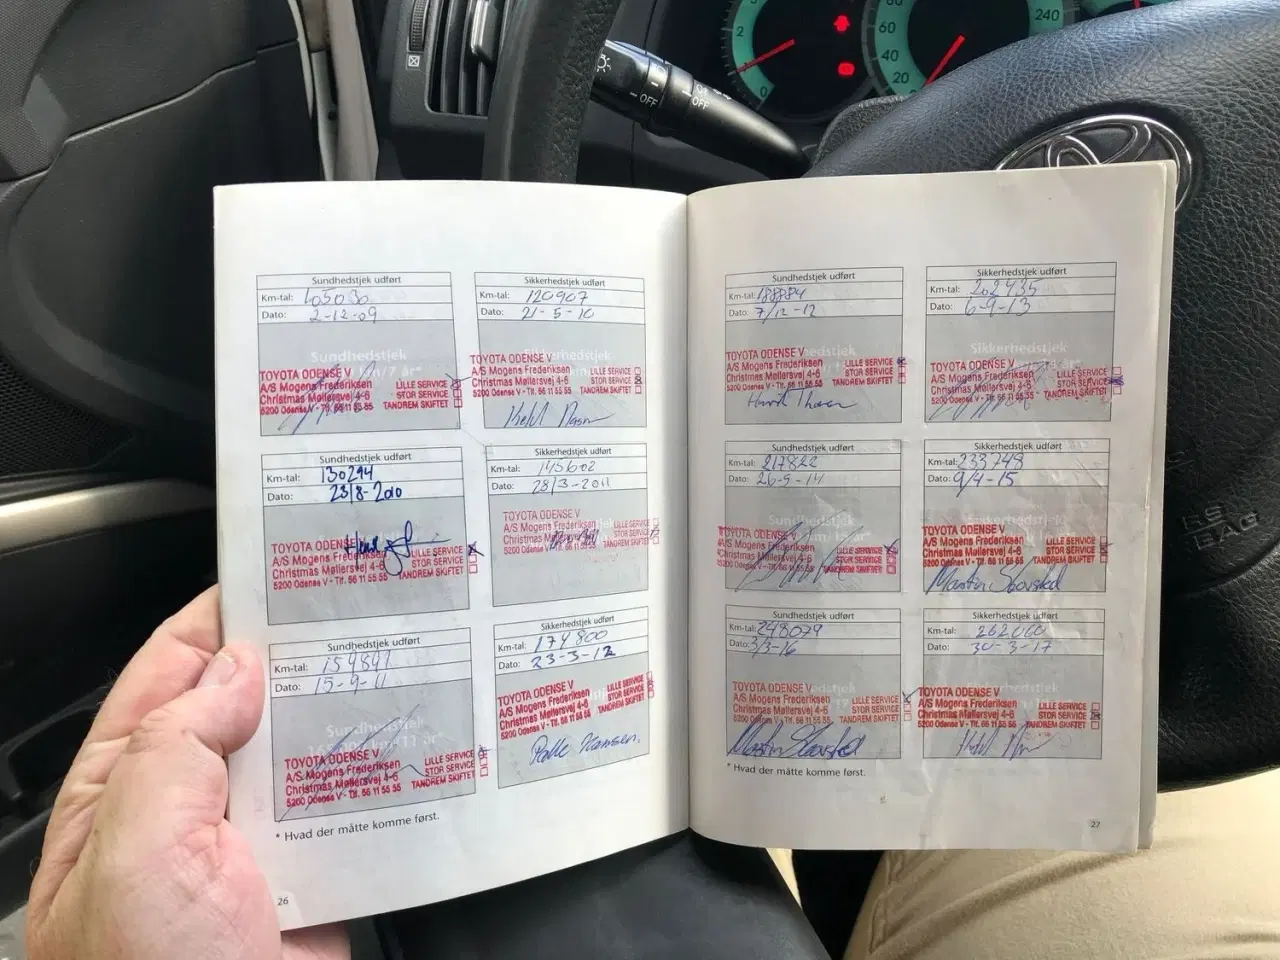 Sundhedstjek udført
Km-tal: 105030
Dato: 2-12-09
Sundhedstjek
TOYOTA ODENSE V
A/S Mogens Frederiksen
Christmas Møllersvej 4-6
5200 Odense V - Tlf. 66 11 55 55
LILLE SERVICE
STOR SERVICE
TANDREM SKIFTET
Sikkerhedstjek udført
Km-tal: 120907
Dato: 21-5-10
TOYOTA ODENSE V
A/S Mogens Frederiksen
Christmas Møllersvej 4-6
5200 Odense V - Tlf. 66 11 55 55
LILLE SERVICE
STOR SERVICE
TANDREM SKIFTET
Sundhedstjek udført
Km-tal: 130294
Dato: 23/8-2010
TOYOTA ODENSE V
A/S Mogens Frederiksen
Christmas Møllersvej 4-6
5200 Odense V - Tlf. 66 11 55 55
LILLE SERVICE
STOR SERVICE
TANDREM SKIFTET
Sikkerhedstjek udført
Km-tal: 145602
Dato: 28/3-2011
TOYOTA ODENSE V
A/S Mogens Frederiksen
Christmas Møllersvej 4-6
5200 Odense V - Tlf. 66 11 55 55
LILLE SERVICE
STOR SERVICE
TANDREM SKIFTET
Sundhedstjek udført
Km-tal: 159847
Dato: 15-9-11
Sundhedstjek
TOYOTA ODENSE V
A/S Mogens Frederiksen
Christmas Møllersvej 4-6
5200 Odense V - Tlf. 66 11 55 55
LILLE SERVICE
STOR SERVICE
TANDREM SKIFTET
Sikkerhedstjek udført
Km-tal: 174800
Dato: 23-3-12
TOYOTA ODENSE V
A/S Mogens Frederiksen
Christmas Møllersvej 4-6
5200 Odense V - Tlf. 66 11 55 55
LILLE SERVICE
STOR SERVICE
TANDREM SKIFTET
Palle Hansen.
* Hvad der måtte komme først.
26
Sundhedstjek udført
Km-tal: 188884
Dato: 7/12-12
TOYOTA ODENSE V
A/S Mogens Frederiksen
Christmas Møllersvej 4-6
5200 Odense V - Tlf. 66 11 55 55
LILLE SERVICE
STOR SERVICE
TANDREM SKIFTET
Sikkerhedstjek udført
Km-tal: 202435
Dato: 6-9-13
Sikkerhedstjek
TOYOTA ODENSE V
A/S Mogens Frederiksen
Christmas Møllersvej 4-6
5200 Odense V - Tlf. 66 11 55 55
LILLE SERVICE
STOR SERVICE
TANDREM SKIFTET
Sundhedstjek udført
Km-tal: 217822
Dato: 26-5-14
TOYOTA ODENSE V
A/S Mogens Frederiksen
Christmas Møllersvej 4-6
5200 Odense V - Tlf. 66 11 55 55
LILLE SERVICE
STOR SERVICE
TANDREM SKIFTET
Sikkerhedstjek udført
Km-tal: 233748
Dato: 9/4-15
TOYOTA ODENSE V
A/S Mogens Frederiksen
Christmas Møllersvej 4-6
5200 Odense V - Tlf. 66 11 55 55
LILLE SERVICE
STOR SERVICE
TANDREM SKIFTET
Martin Skovsted
Sundhedstjek udført
Km-tal: 248079
Dato: 3/3-16
TOYOTA ODENSE V
A/S Mogens Frederiksen
Christmas Møllersvej 4-6
5200 Odense V - Tlf. 66 11 55 55
LILLE SERVICE
STOR SERVICE
TANDREM SKIFTET
Martin Skovsted
Sikkerhedstjek udført
Km-tal: 262060
Dato: 30-3-17
TOYOTA ODENSE V
A/S Mogens Frederiksen
Christmas Møllersvej 4-6
5200 Odense V - Tlf. 66 11 55 55
LILLE SERVICE
STOR SERVICE
TANDREM SKIFTET
* Hvad der måtte komme først.
27
OFF
OFF
2
0
80
60
40
20
240
SRS
AIRBAG